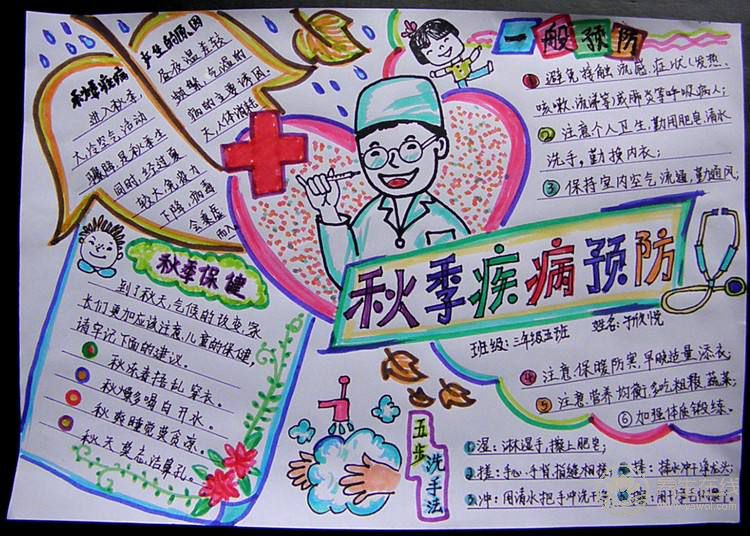 秋季疾病
进入秋季,
天,冷空气活动
骤腾,是秋季生
同时,经过夏
较大,免疫力
下降,病毒
会乘虚
而入
产生的原因
昼夜温差较
频繁,气温的
病的主要诱因。
天,人体消耗
一般预防
① 避免接触流感症状(发热、
咳嗽、流涕等)或肺炎等呼吸病人;
② 注意个人卫生,勤用肥皂、清水
洗手,勤换内衣;
③ 保持室内空气流通,勤通风;
秋季疾病预防
班级:三年级五班 姓名:于欣悦
④ 注意保暖防寒,早晚适量添衣。
⑤ 注意营养均衡,多吃粗粮、蔬菜;
⑥ 加强体质锻练。
秋季保健
到了秋天,气候的改变,家
长们更加应该注意儿童的保健,
请牢记下面的建议。
秋冻春捂乱穿衣。
秋燥多喝白开水。
秋爽睡觉莫贪凉。
秋天莫忘洁鼻孔。
五步洗手法
1.湿:淋湿手,擦上肥皂;
2.搓:手心、手背、指缝相搓
3.冲:用清水把手冲洗干净
捧:捧水冲干净水龙头;
养生在线
www.yawol.com